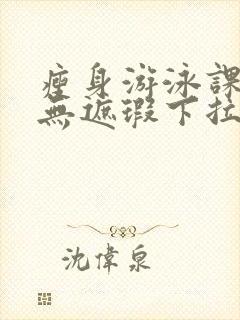 瘦身游泳課
無遮瑕下拉
沈偉泉